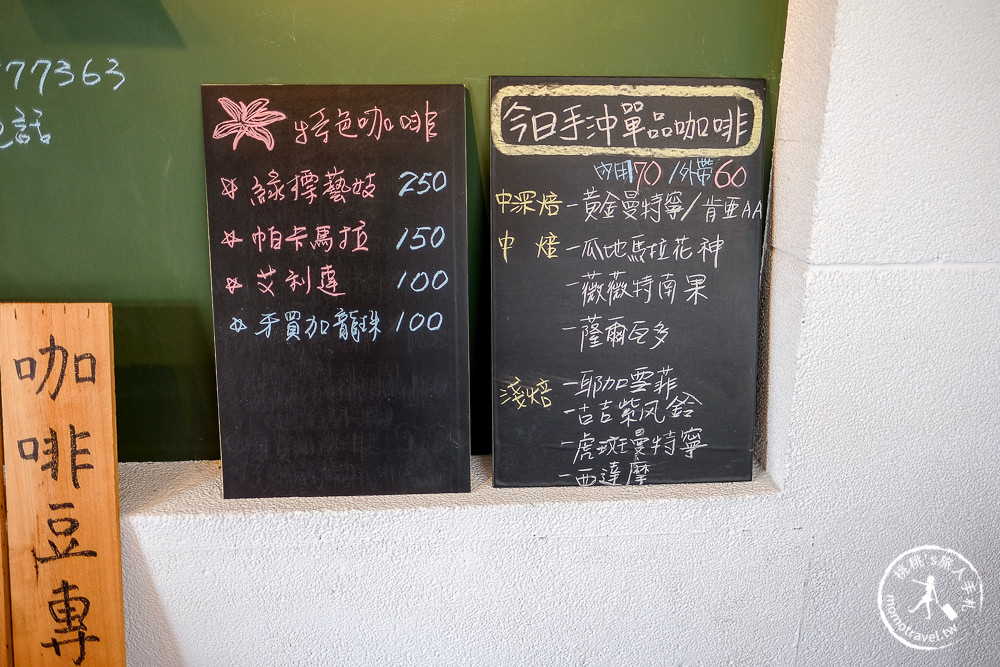 77363
話
特色咖啡
綠標藝妓 250
帕卡馬拉 150
艾利達 100
牙買加龍珠 100
今日手沖單品咖啡
內用70/外帶60
中深焙-黃金曼特寧/肯亞AA
中 焙-瓜地馬拉花神
-薇薇特南果
-薩爾瓦多
淺焙-耶加雪菲
-古吉紫风鈴
-虎斑曼特寧
-西達摩
咖啡豆專
桃桃's旅人手札
momotravel.tw